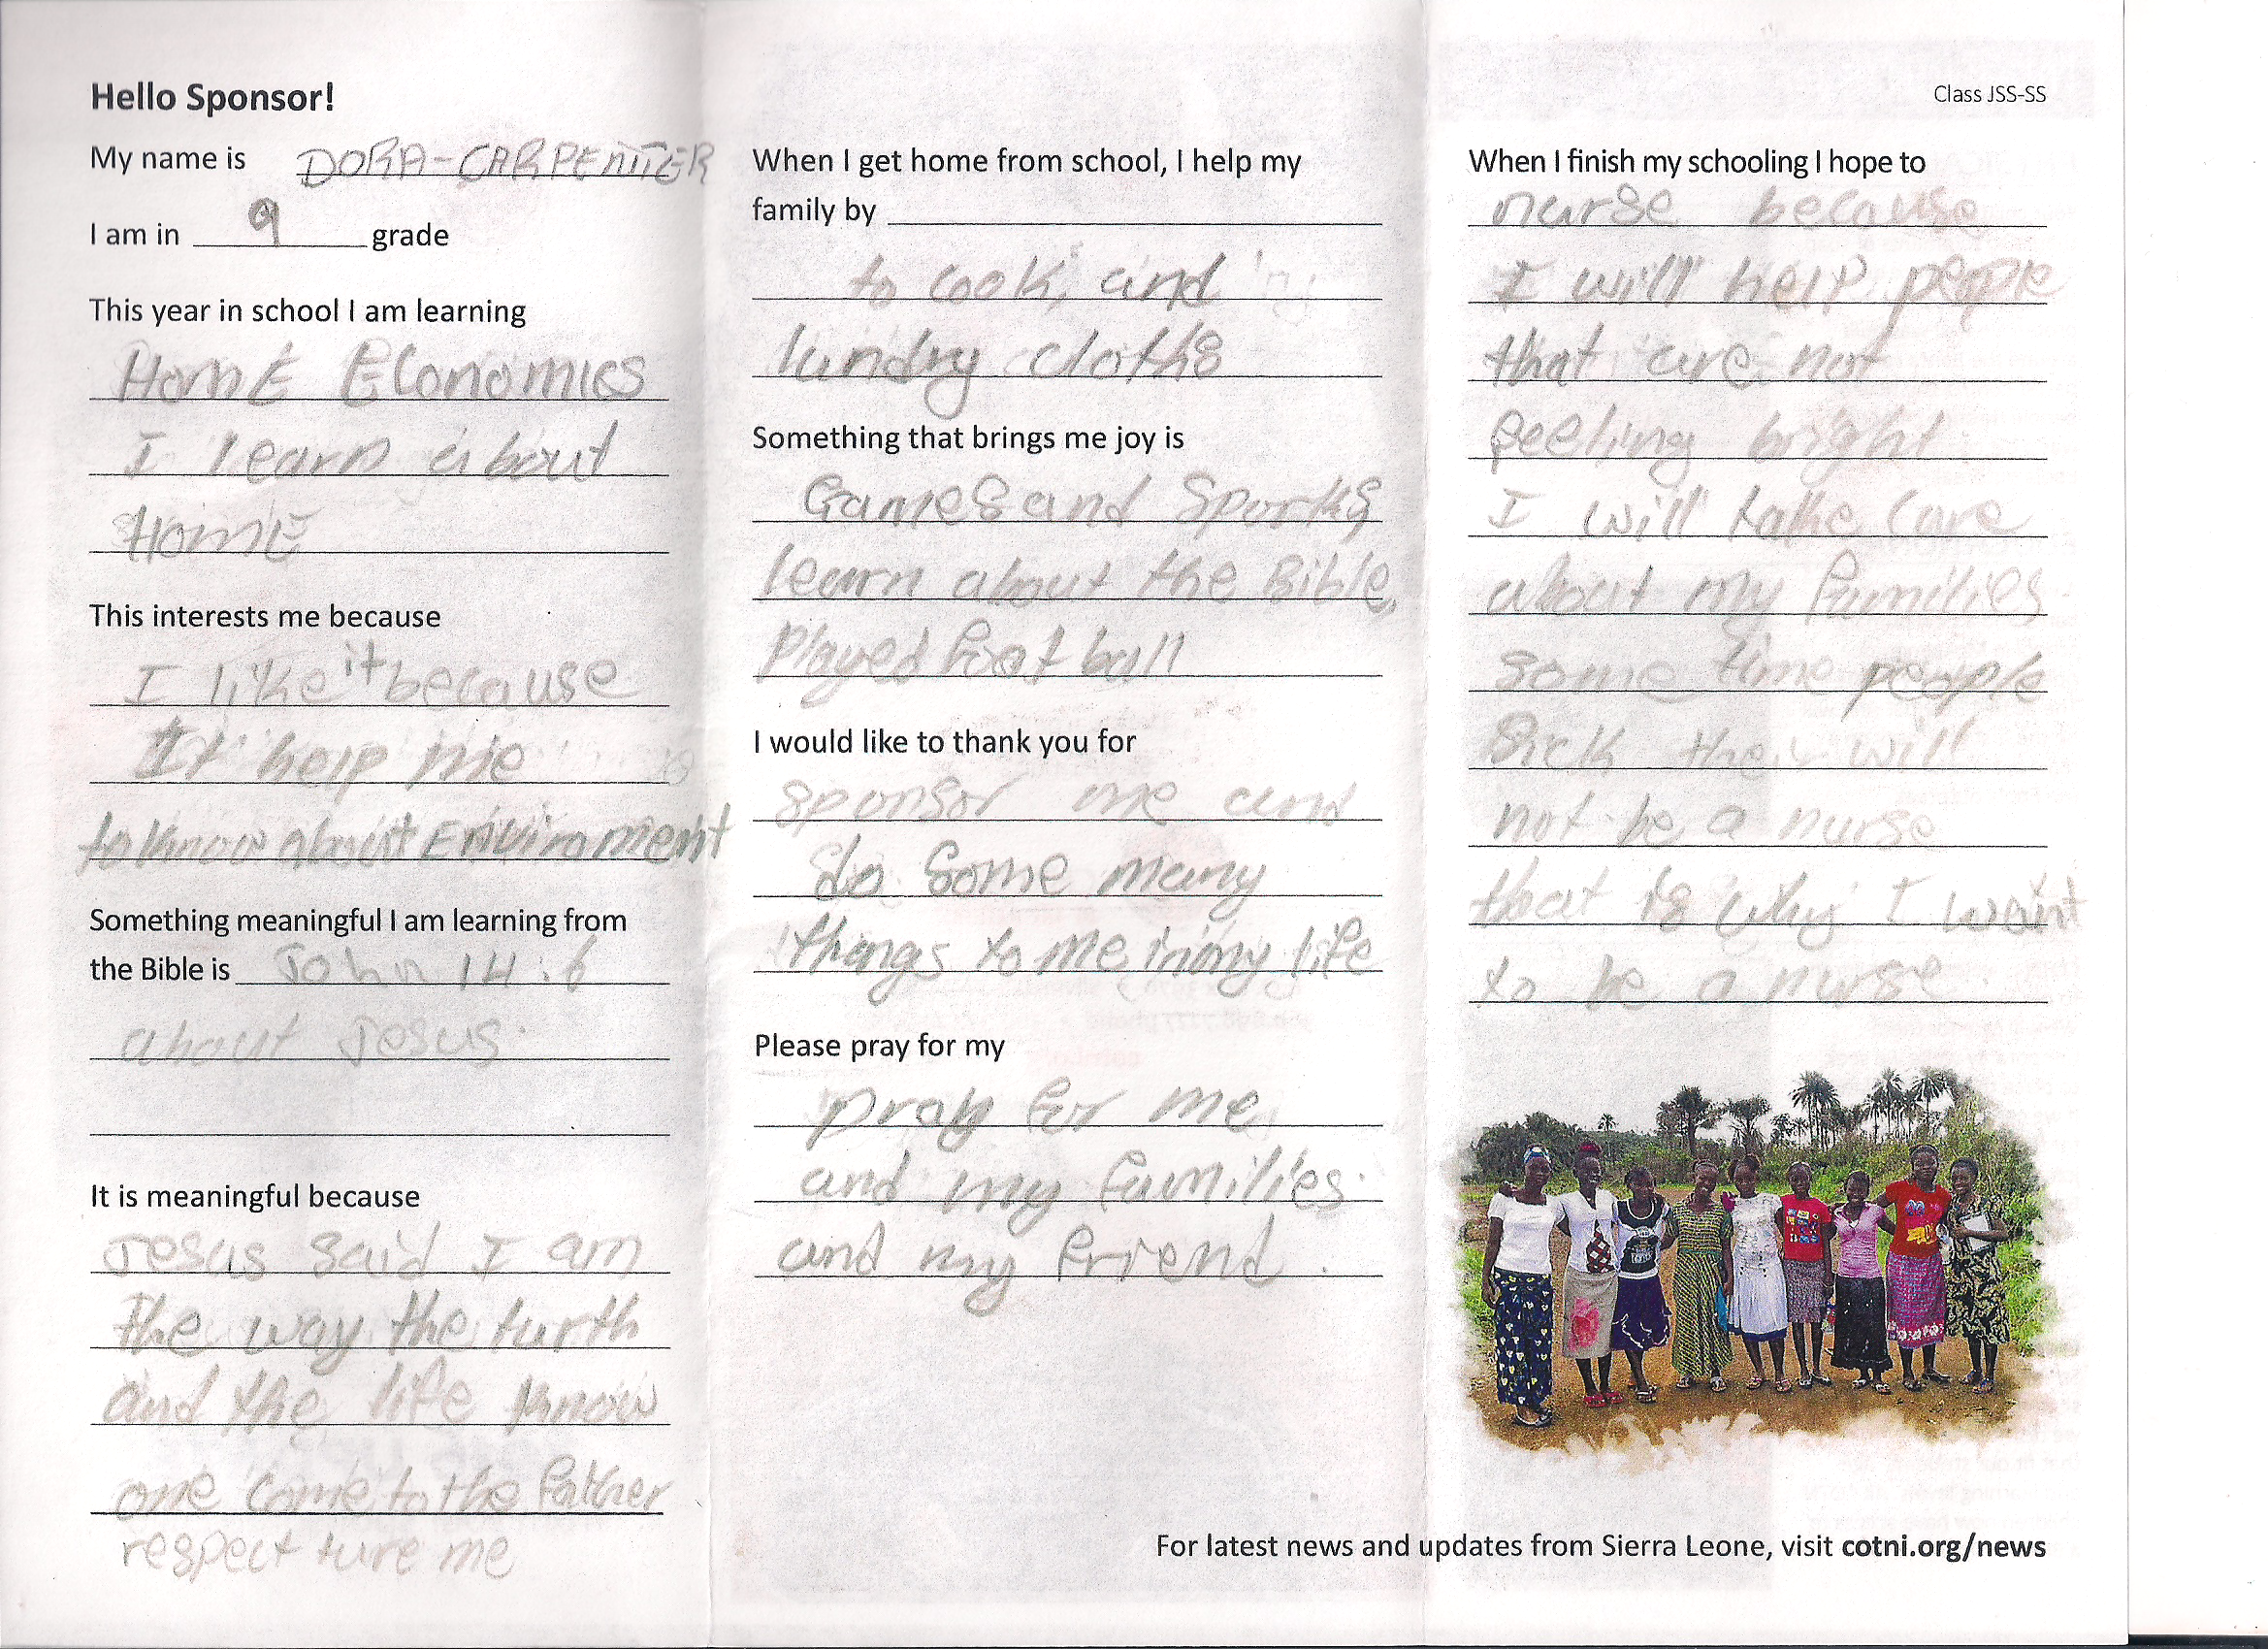 Hello Sponsor!
My name is DORA-CARPENTER
I am in 9 grade
This year in school I am learning
HomE Economics
I learn about
HomE
This interests me because
I like it because
It help me
to know about Enviroment
Something meaningful I am learning from
the Bible is John 14:6
about Jesus.
It is meaningful because
Jesus said I am
the way the turth
and the life know
one come to the Father
respect ture me
When I get home from school, I help my
family by
to cook, and
lundry cloths
Something that brings me joy is
Games and Sports
learn about the Bible,
Played foot ball
I would like to thank you for
sponsor me and
do some many
things to me in my life
Please pray for my
pray for me
and my families.
and my friend.
Class JSS-SS
When I finish my schooling I hope to
nurse because
I will help people
that are not
feeling bright
I will take care
about my families.
some time people
sick they will
not be a nurse
that is why I want
to be a nurse.
For latest news and updates from Sierra Leone, visit cotni.org/news